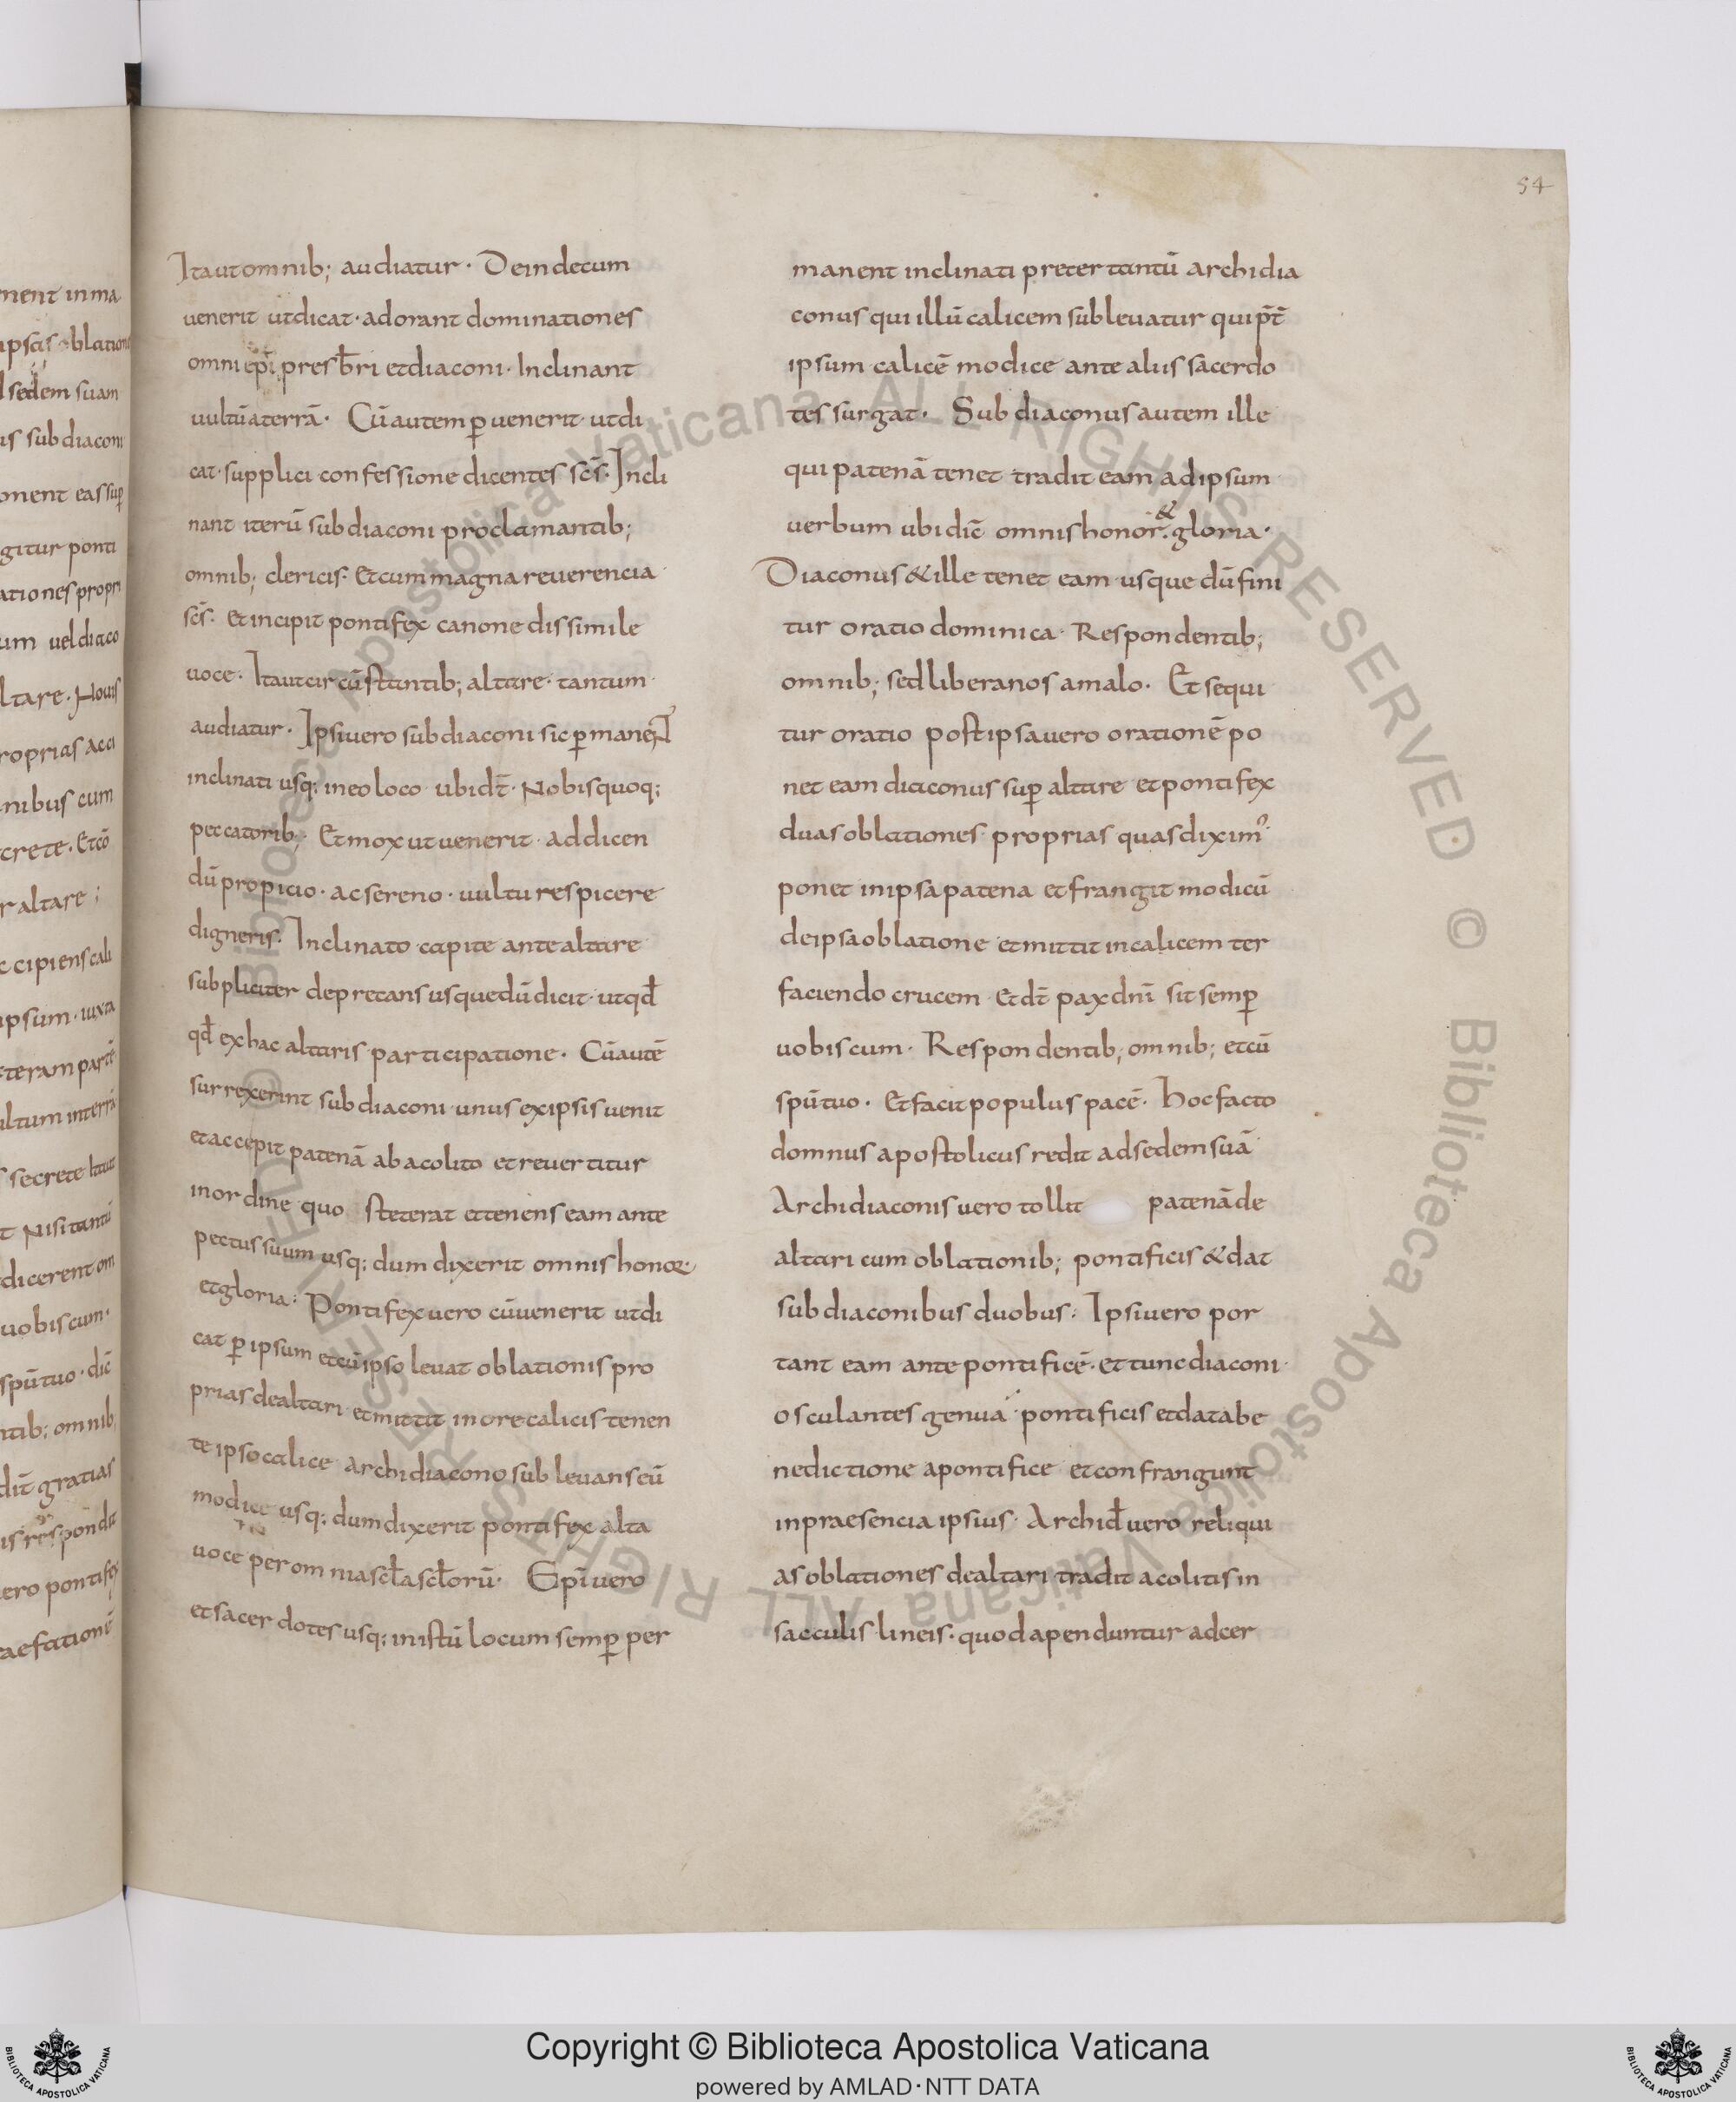 54
Itautomnib; audiatur· Deindecum
uenerit utdicat· adorant dominationes
omni epī presb̄ri etdiaconi· Inclinant
uultūaterrā· Cūautem ꝑuenerit· utdi
cat· supplici confessione dicentes sc̄s· Incli
nant iterū subdiaconi proclamantib;
omnib; clericis· Etcum magnareuerencia
sc̄s· Etincipit pontifex canone dissimile
uoce· Itautcircū stantib; altare· tantum
audiatur· Ipsiuero subdiaconi sic ꝑmaneNT
inclinati usq; ineoloco ubidt̄· Nobisquoq;
peccatorib; Etmox utuenerit· addicen
dū propicio· acsereno· uultu respicere
digneris· Inclinato capite antealtare
subpliciter depretans usquedū dicit· utqd̄
qd̄ exhac altaris participatione· Cūautē
surrexerint subdiaconi unus exipsis uenit
etaccepit patenā abacolito etreuertitur
inordine quo steterat ettenens eam ante
pectus suum usq; dum dixerit omnis honoꝝ·
etgloria· Pontifex uero cūuenerit utdi
cat ꝑipsum etcūipso leuat oblationis pro
prias dealtari etmittit inore calicis tenen
te ipsocalice archidiacono subleuans eū
modice usq; dumdixerit pontifex alta
uoce per omniascl̄ascl̄orū· Epī uero
etsacerdotes usq; inistū locum semꝑ per
manent inclinati preter tantū archidia
conus qui illū calicem subleuatur quip̄t̄
ipsum calicē modice ante aliis sacerdo
tes surgat· Subdiaconus autem ille
qui patenā tenet tradit eam adipsum
uerbum ubi dic̄ omnis honor· & gloria·
Diaconus & ille tenet eam usque dū fini
tur oratio dominica· Respondentib;
omnib; sedliberanos amalo· Et sequi
tur oratio postipsauero orationē po
net eam diaconus suꝑ altare etpontifex
duas oblationes proprias quas diximꝰ·
ponet inipsapatena etfrangit modicū
deipsaoblatione etmittit incalicem ter
faciendo crucem etdt̄ pax dnī sit semꝑ
uobiscum· Respondentib; omnib; etcū
spū tuo· Etfacit populus pacē· Hocfacto
domnus apostolicus redit adsedem suā
Archidiaconis uero tollit patenā de
altari cum oblationib; pontificis & dat
subdiaconibus duobus· Ipsiuero por
tant eam ante pontificē· et tunc diaconi
osculantes genua· pontificis etdatabe
nedictione apontifice etconfrangunt
inpraesencia ipsius· Archid̄ uero reliqui
as oblationes dealtari tradit acolitis in
sacculis lineis· quodapenduntur adcer
Copyright © Biblioteca Apostolica Vaticana
powered by AMLAD·NTT DATA